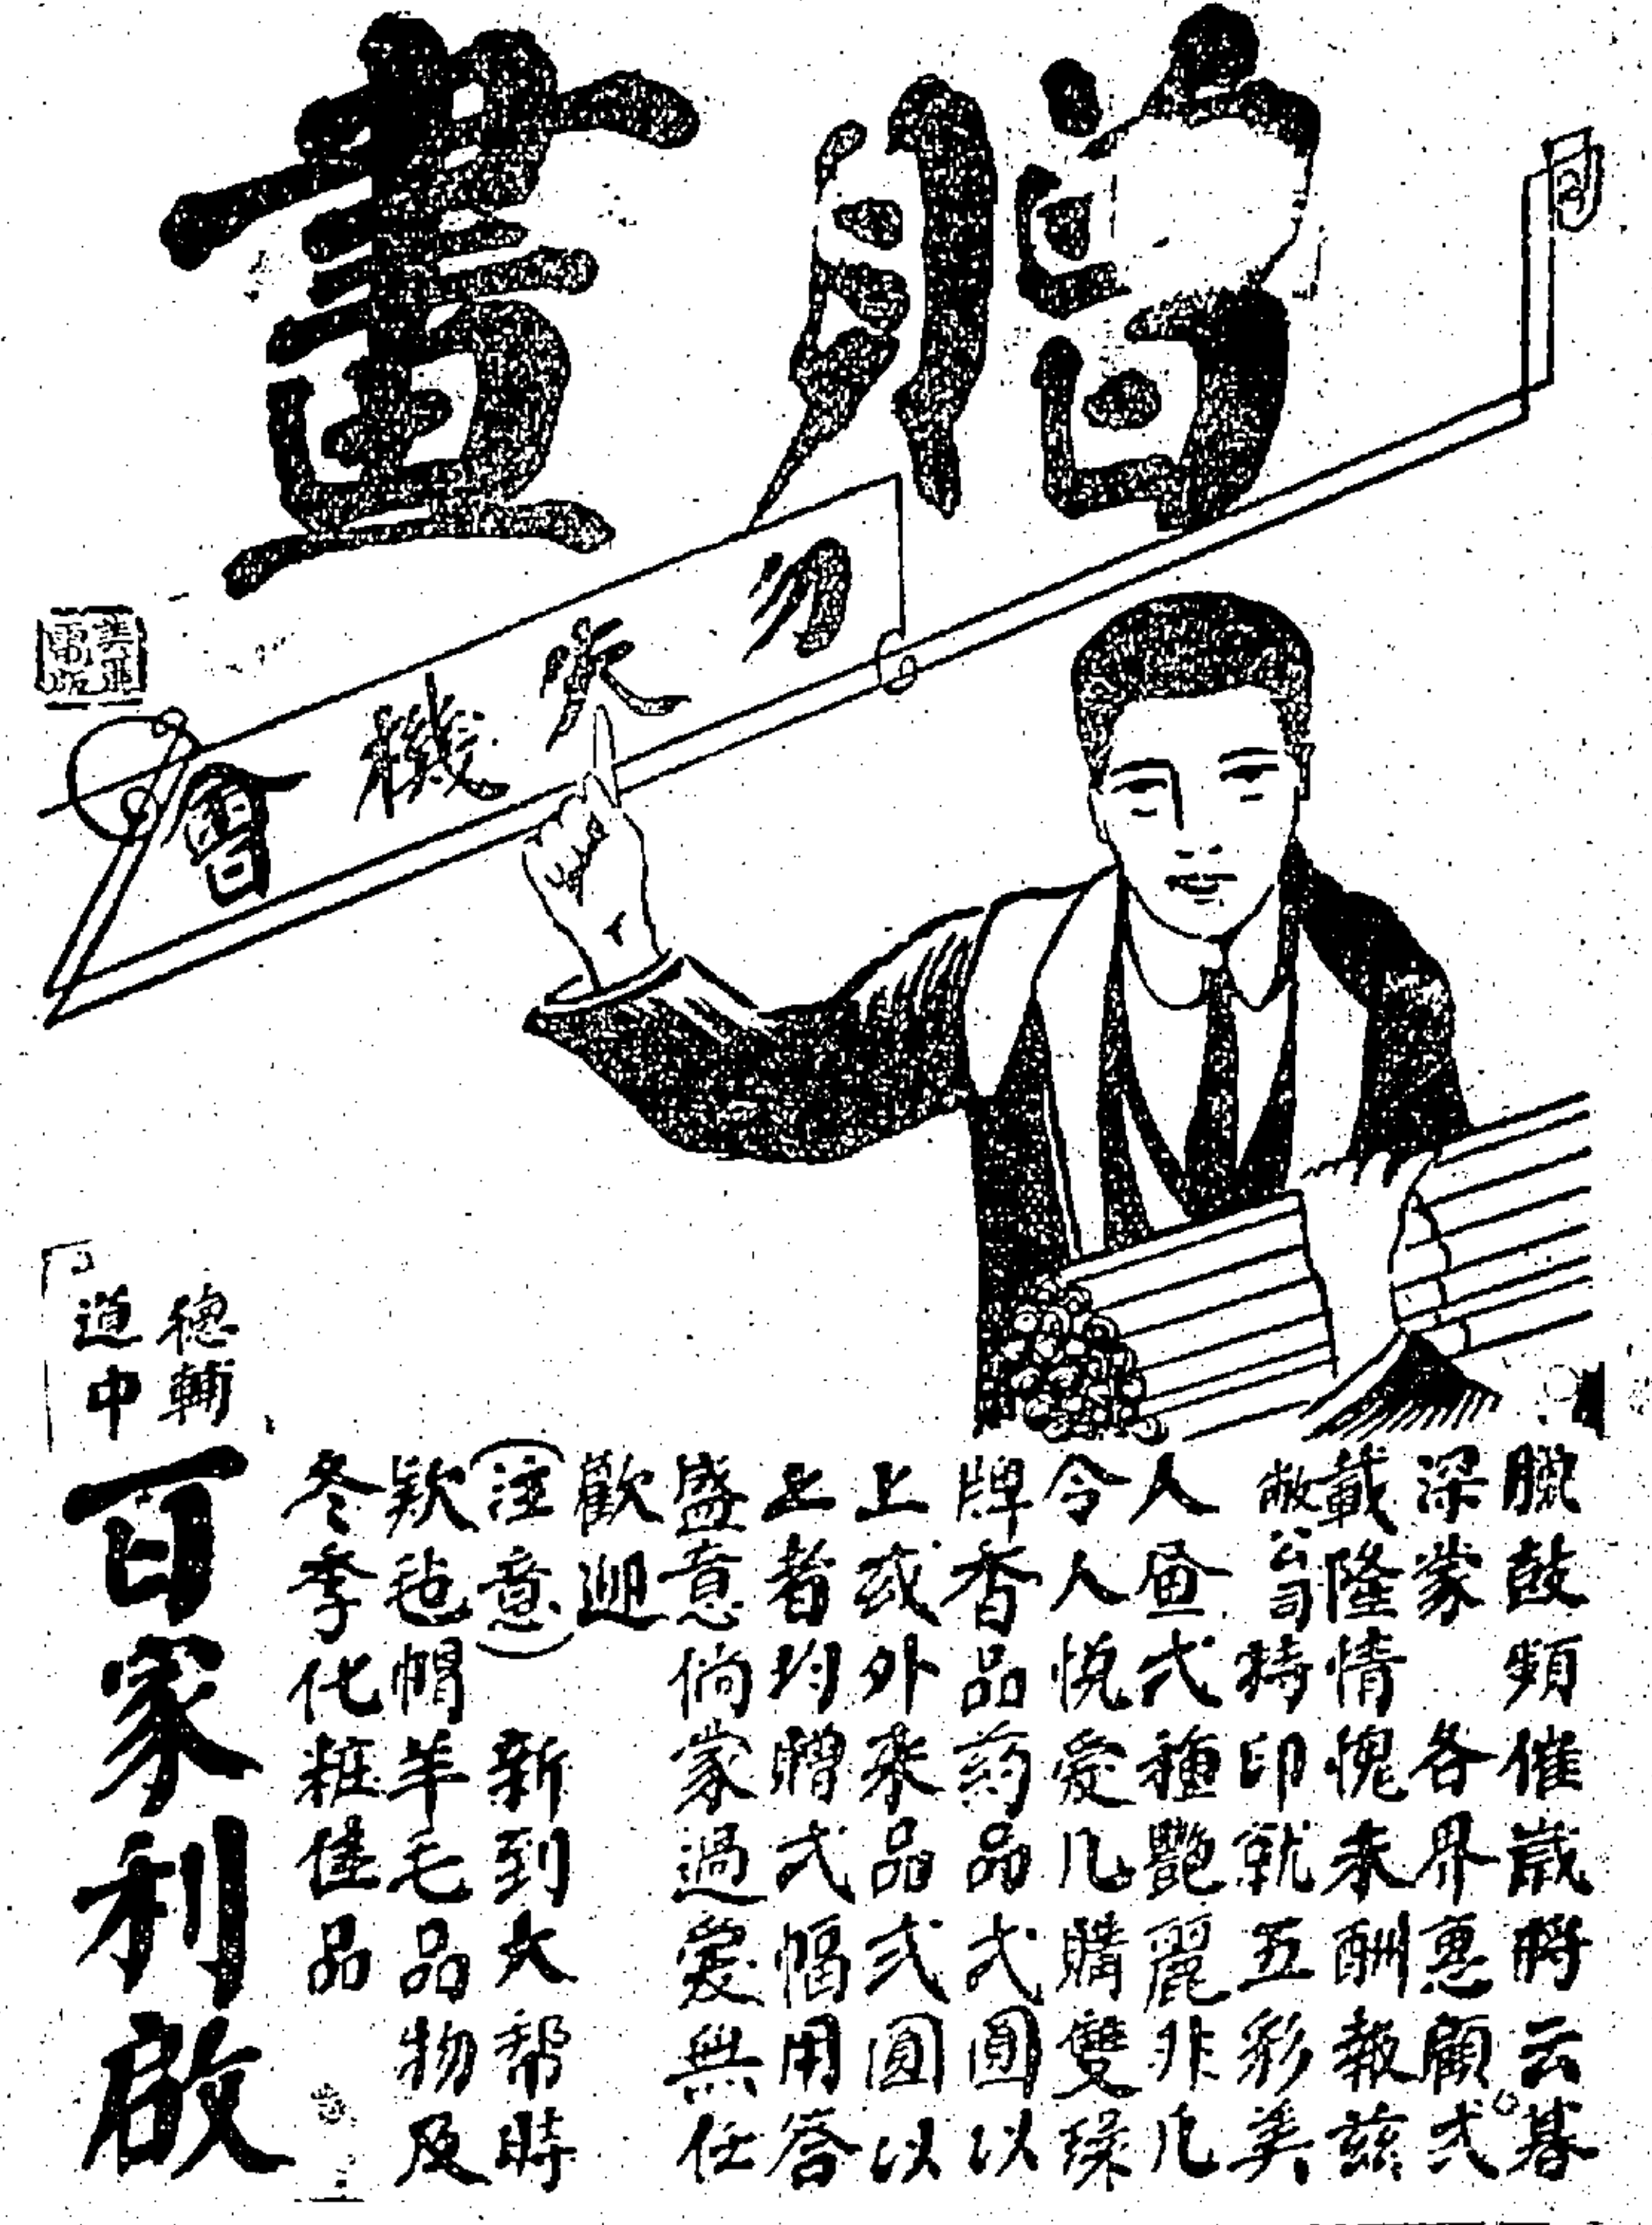 贈畫
勿失機會
臘鼓頻催歲將云暮
深蒙 各界惠顧弍
載隆情愧未酬報茲
敝公司特印就五彩美
人画弍種艷麗非凡
令人悅愛凡購雙
牌香品葯品弍圓以
上或外來品弍圓以
上者均贈弍幅用答
盛意倘蒙過愛無任
歡迎
(注意) 新到大帮時
欵毡帽羊毛品物及
冬季化粧佳品
德輔
道中
百家利啟